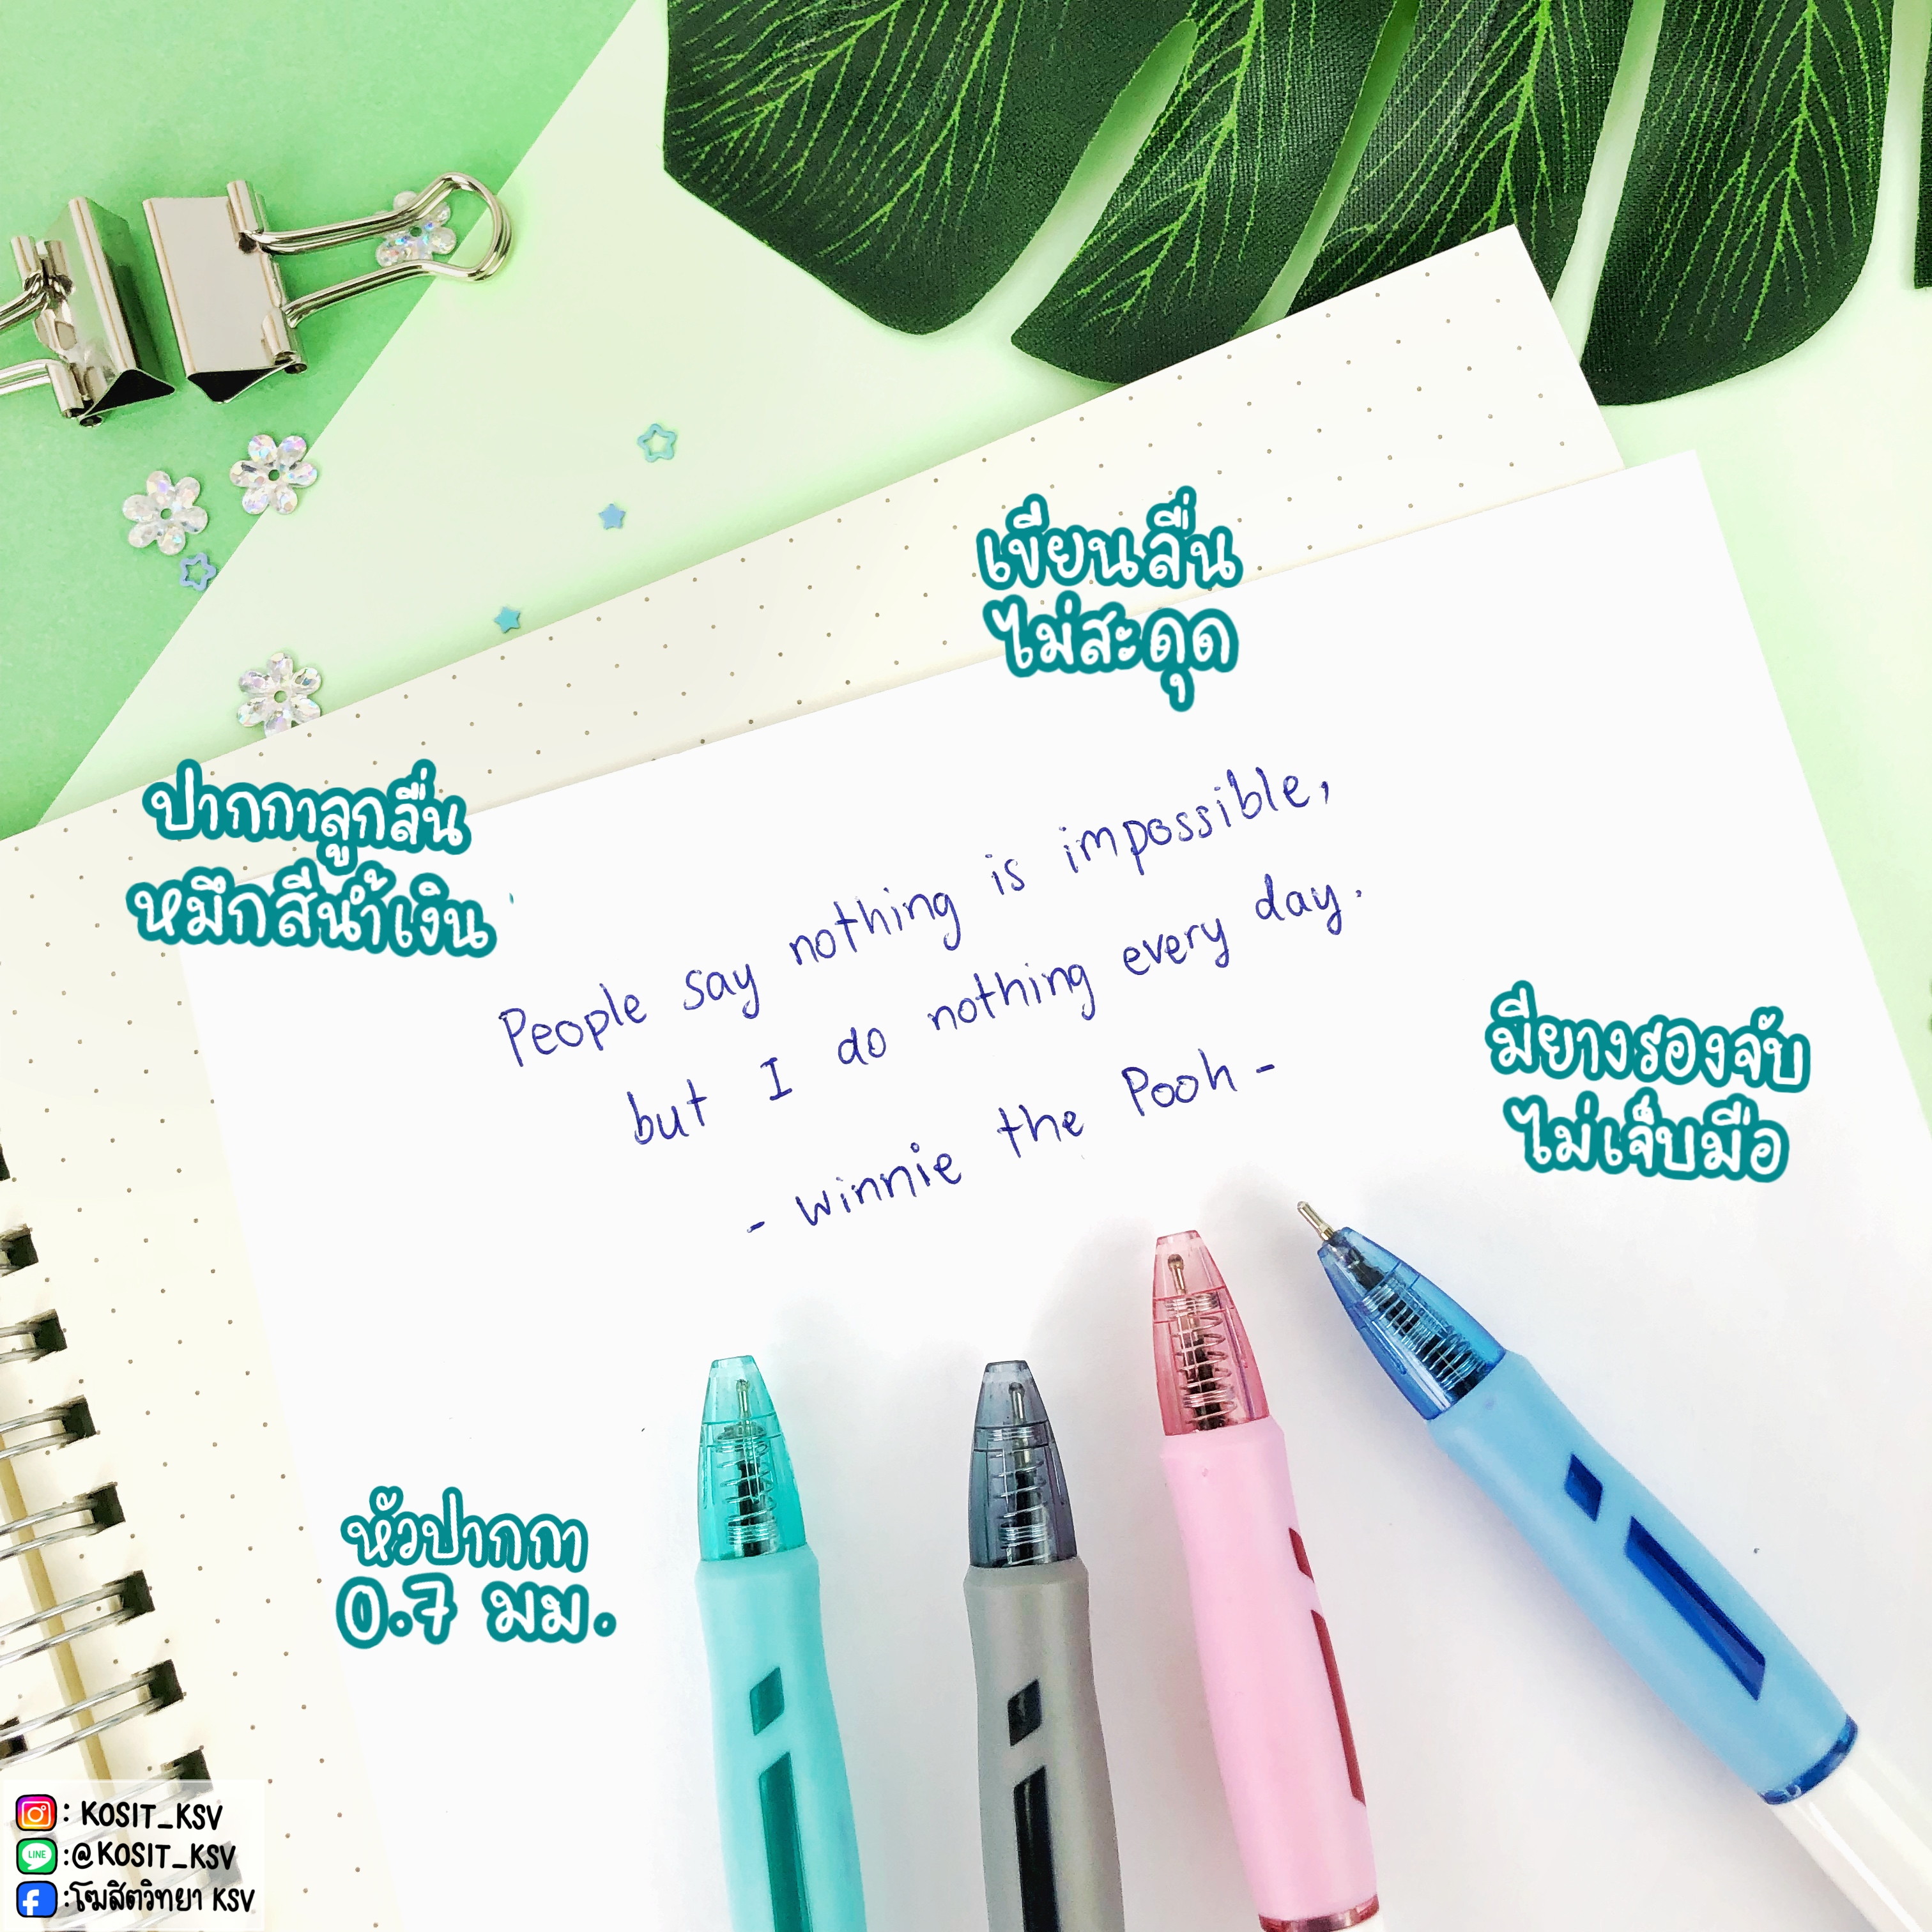 เขียนลื่น
ไม่สะดุด
ปากกาลูกลื่น
หมึกสีน้ำเงิน
People say nothing is impossible,
but I do nothing every day.
- Winnie the Pooh -
มียางรองจับ
ไม่เจ็บมือ
หัวปากกา
0.7 มม.
: KOSIT_KSV
LINE :@KOSIT_KSV
:โฆสิตวิทยา KSV